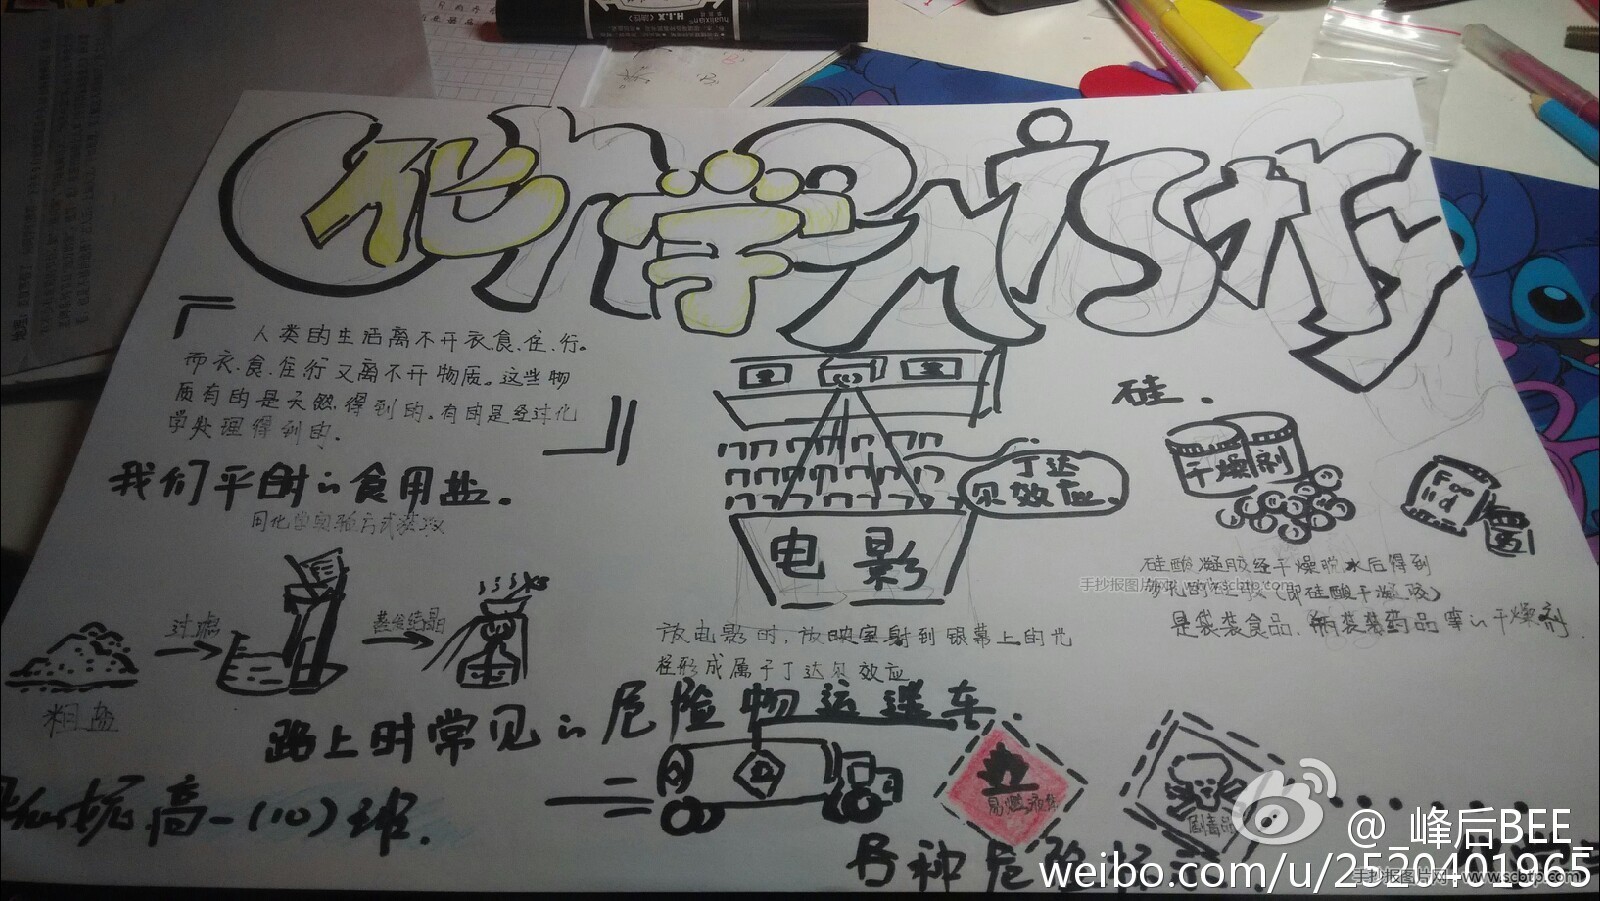 化学与技
人类的生活离不开衣、食、住、行。
而衣、食、住、行又离不开物质。这些物
质有的是天然得到的。有的是经过化
学处理得到的。
我们平时的食用盐。
用化学实验方式获取
粗盐
过滤
蒸发结晶
电影
丁达
尔效应。
放电影时，放映室射到银幕上的光
柱形成属于丁达尔效应
硅.
干燥剂
硅酸凝胶经干燥脱水后得到
(即硅酸干凝胶)
是袋装食品、瓶装药品等的干燥剂.
路上时常见的危险物运送车.
易燃液体
剧毒品
高一(10)班.
各种危
手抄报图片网 www.scbtp.com
@_峰后BEE_
weibo.com/u/2520401965
手抄报图片网 www.scbtp.com
hualixian